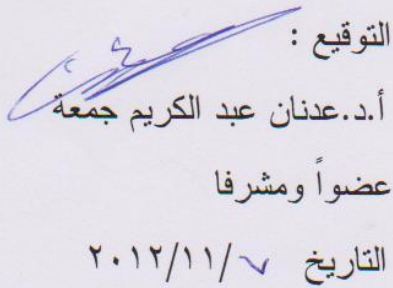 التوقيع :
أ.د.عدنان عبد الكريم جمعة
عضواً ومشرفا
التاريخ ٧/١١/٢٠١٢